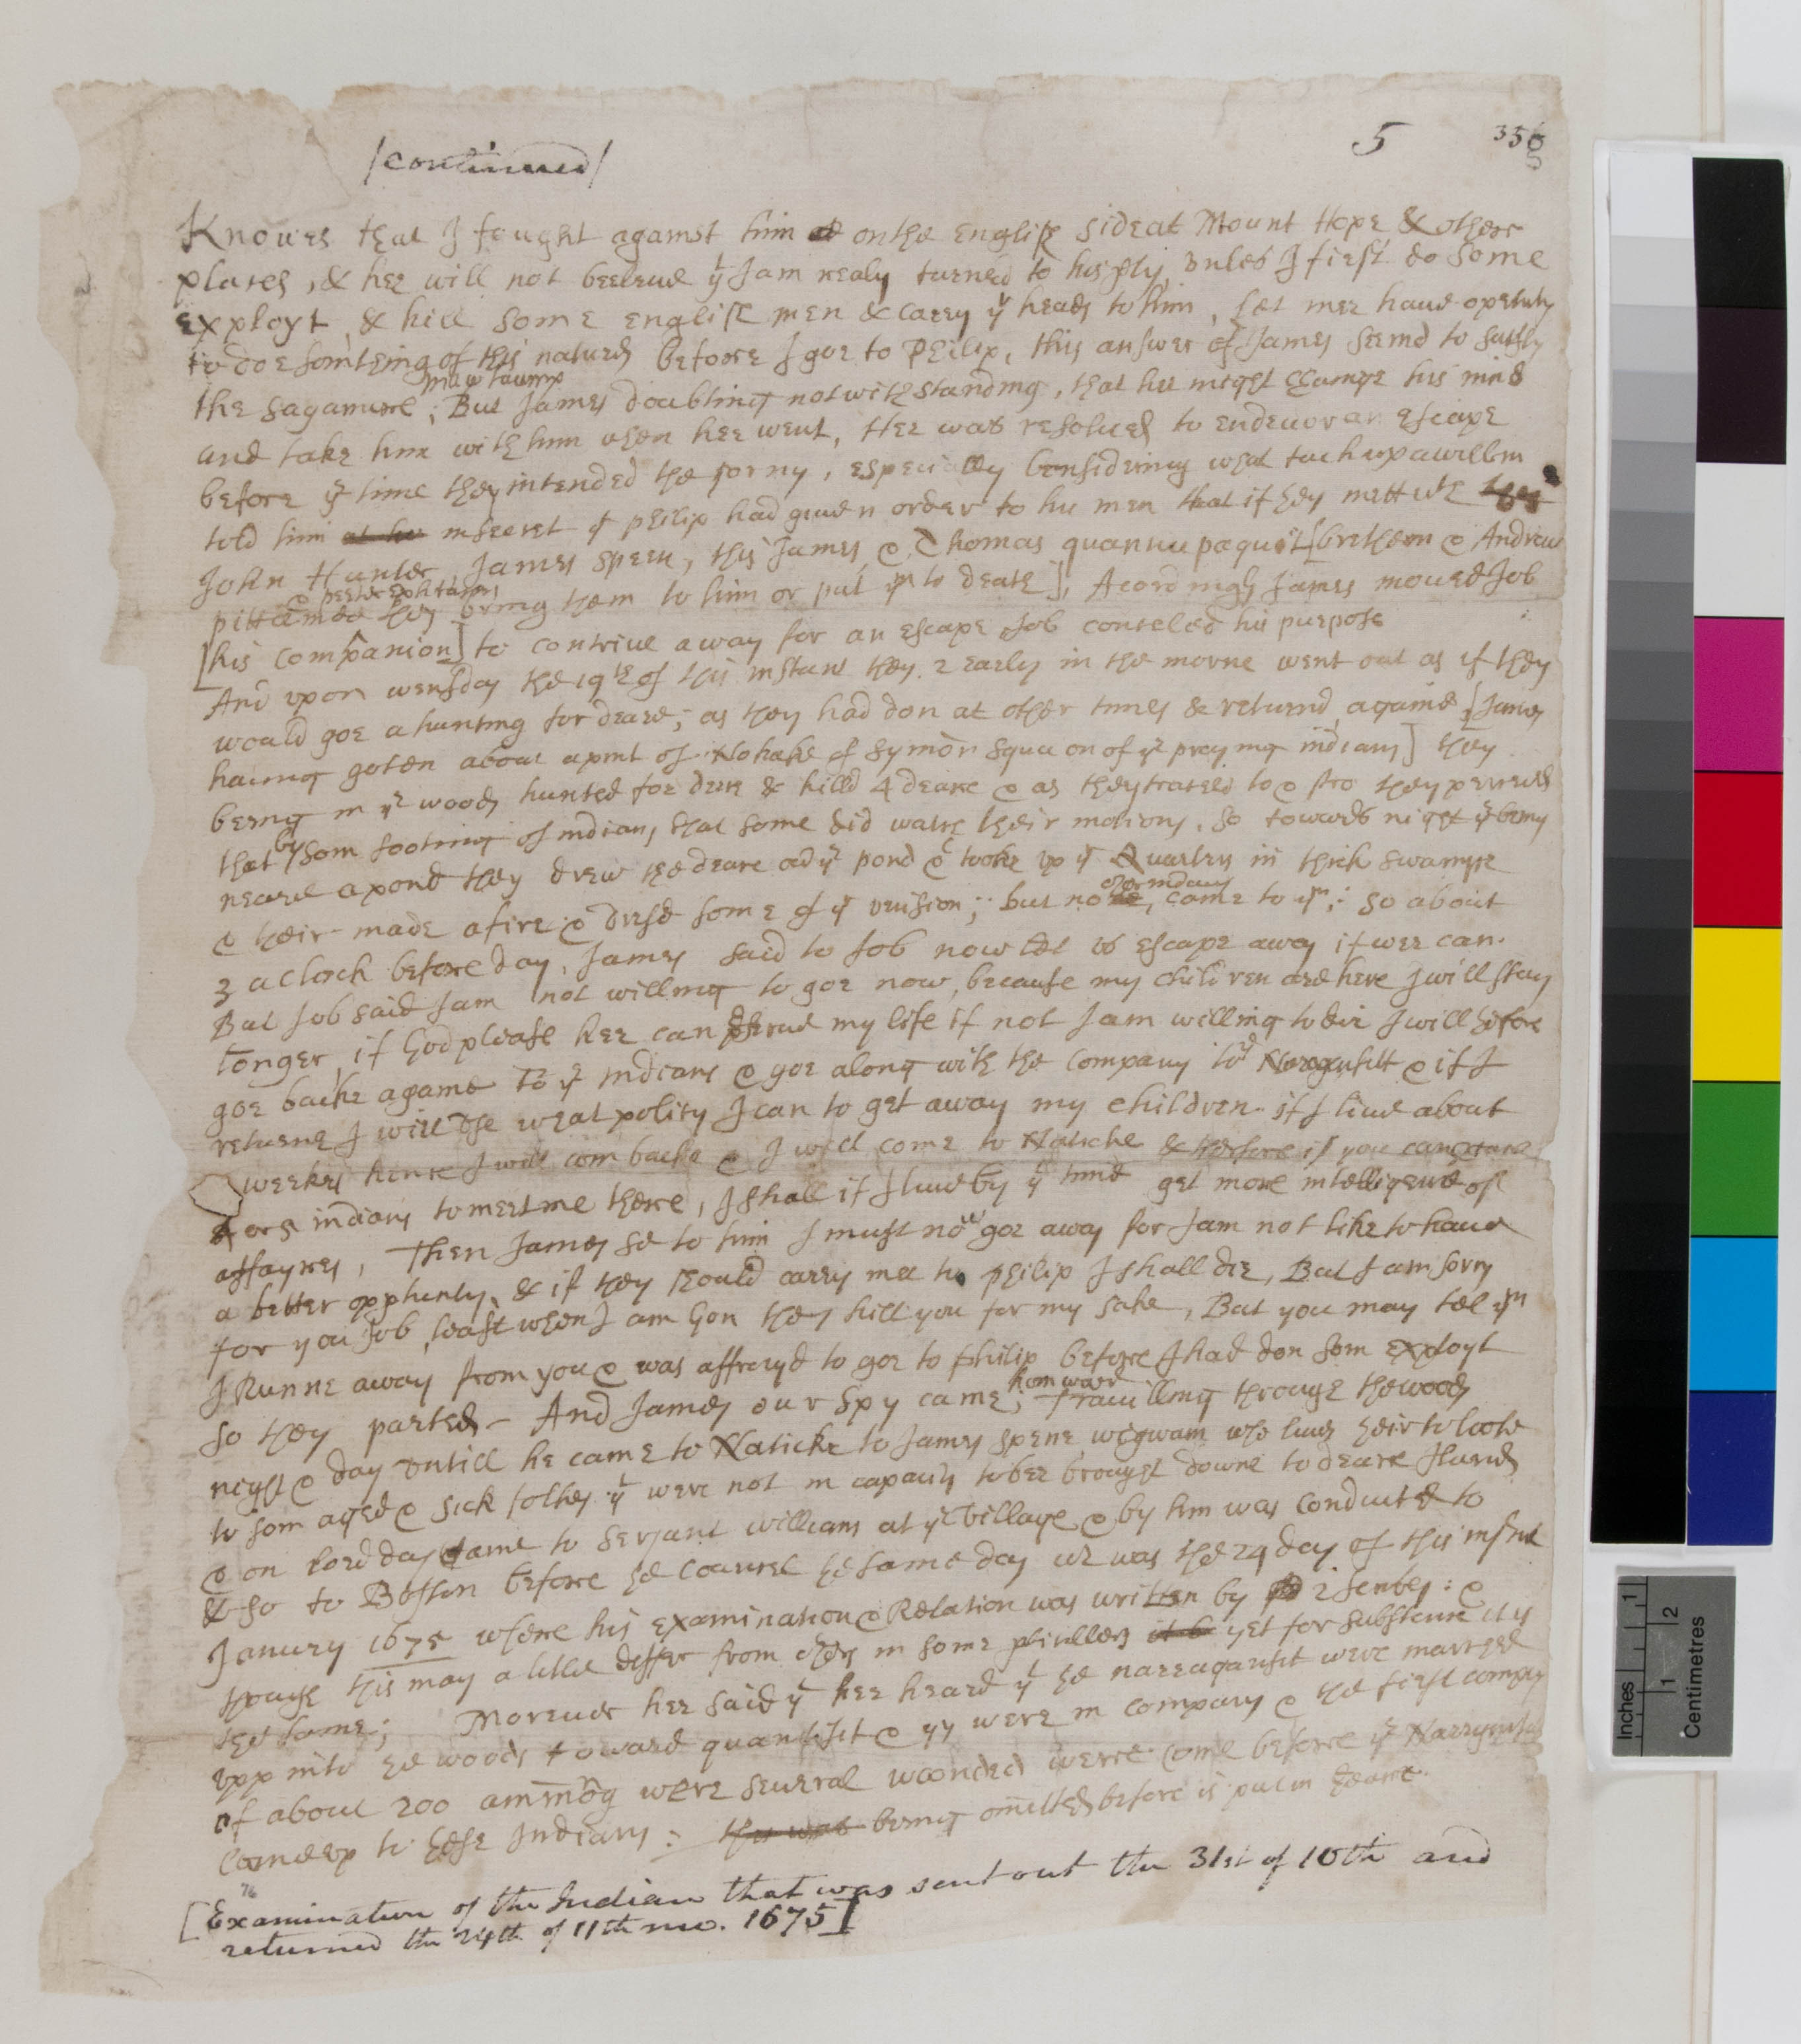 /continued/
5
358
Knowes that I fought against him on the English side at Mount Hope & other
places, & hee will not beeleue yt I am realy turned to his pty, vnles I first do some
Exployt & kill some English men & carry yr heads to him, let mee haue opertuty
to doe somthing of this nature before I goe to Philip, this answer of James seemd to satisfy
mawtaump
the sagamure; But James doubting notwithstanding, that hee might change his mind
and take him with him when hee went, Hee was resolued to endeuor an escape
before ye time they intended the jorny, especially considering what tuckupawillin
told him at his in secret yt philip had giuen order to his men that if they mett wth thes
John Hunter, James Speen, this James, & Thomas quannupaquit [bretheren & Andrew
& peeter Ephraim
pittamee they bring them to him or put ym to death], Acordingly James moued Job
[his companion] to contriue a way for an escape Job conceled his purpose
And vpon wensday the 19th of this instant they 2 early in the morne went out as if they
would goe a hunting for deare; as they had don at other times & returnd againe [James
haiung goten about a pint of Nokake of Symon squa on of ye praying indians] they
being in ye woods hunted for deere & killd 4 deare & as they traveld to & fro they perceued
that by som footing of indians that some did watch their motions, so towards night yy being
neare a pond they drew the deare at ye pond & tooke vp yr Quarters in thick swampe
& their made a fire & dresd some of ye venison; but no other indians come to ym; so about
3 a clock before day, James said to Job now let vs escape away if wee can.
But Job said I am not willing to goe now, because my children are here I will stay
longer, if God please hee can pserue my life if not I am willing to die I will therfore
goe backe againe to ye indians & goe along with the company to ye Naragansitt & if I
returne I will vse what policy I can to get away my children. if I liue about
weekes hence I will com backe & I will come to Naticke & therfore if you can take
4 or 5 indians to meet me there, I shall if I liue by yt time get more intelligence of
affayres, Then James sd to him I must now goe away for I am not like to haue
a better opptunity, & if they should carry mee to philip I shall die, But I am sorry
for you Job, least when I am Gon they kill you for my sake, But you may tel ym
I Runne away from you & was affrayd to goe to philip before I had don som exployt
homward
So they parted - And James our spy came, Trauilling through the woods
night & day vntill he came to Naticke to James Spene wigwam who liues their to looke
to som aged & sick folkes yt were not in capacity to bee brought downe to deare Iland
& on Lord day came to serjant williams at ye village & by him was conducted to
& so to Boston before the councel the same day wch was the 24 day of this instnt
Janury 1675 where his examination & Relation was written by 2 scribes: &
though this may a little differ from others in some pticullers it b yet for substance it is
the same; Moreuer hee said yt hee heard yt the narragansit were marched
vpp into the woods toward quantisit & yy were in company & the first company
of about 200 among were seueral wounded were come before ye Narrgansit
come vp to these Indians: this was being omitted before is put in heare.
76
[Examination of the Indian that was sent out the 31st of 10th and
returned the 24th of 11th mo. 1675]
Inches
1
Centimetres
1
2